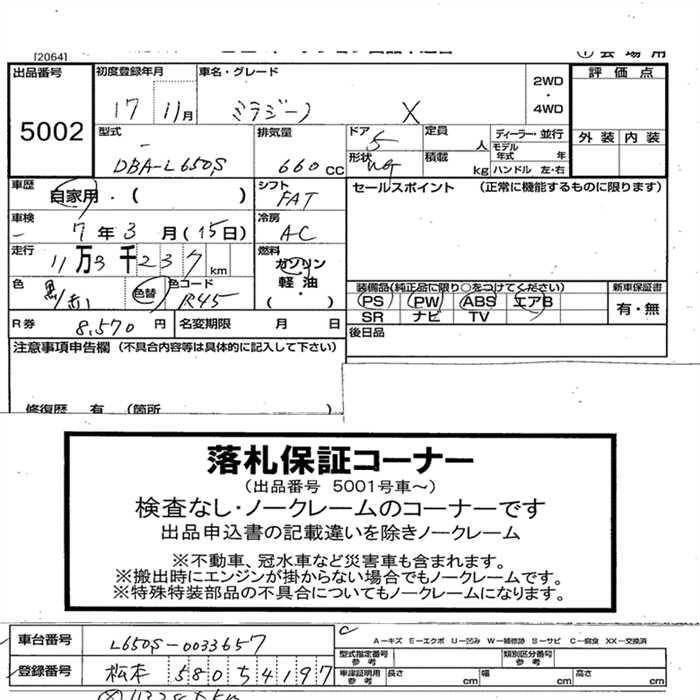 [2064]
出品番号 初度登録年月 車名・グレード 2WD・4WD 評価点
5002 17 11月 ミラジーノ X 外装 内装
型式 排気量 ドア 5 定員 人 ディーラー・並行
DBA-L650S 660 CC 形状 積載 kg モデル年式 年
ハンドル 左・右
車歴 自家用・( ) シフト FAT セールスポイント (正常に機能するものに限ります)
車検 7年3月(15日) 冷房 AC
走行 11万3千237km 燃料 ガソリン 軽油・( )
色 黒/赤 色替 色コード R45 装備品(純正品に限り○をつけてください) 新車保証書
PS PW ABS エアB 有・無
SR ナビ TV
R券 8,570円 名変期限 月 日 後日品
注意事項申告欄 (不具合内容等は具体的に記入して下さい)
修復歴 有 (箇所 )
落札保証コーナー
(出品番号 5001号車～)
検査なし・ノークレームのコーナーです
出品申込書の記載違いを除きノークレーム
※不動車、冠水車など災害車も含まれます。
※搬出時にエンジンが掛からない場合でもノークレームです。
※特殊特装部品の不具合についてもノークレームになります。
車台番号 L650S-0033657 A－キズ E－エクボ U－凹み W－補修跡 S－サビ C－腐食 XX－交換済
型式指定番号 参考 類別区分番号 参考
登録番号 松本 580 5 4197 車庫証明用 参考 長さ cm 幅 cm 高さ cm